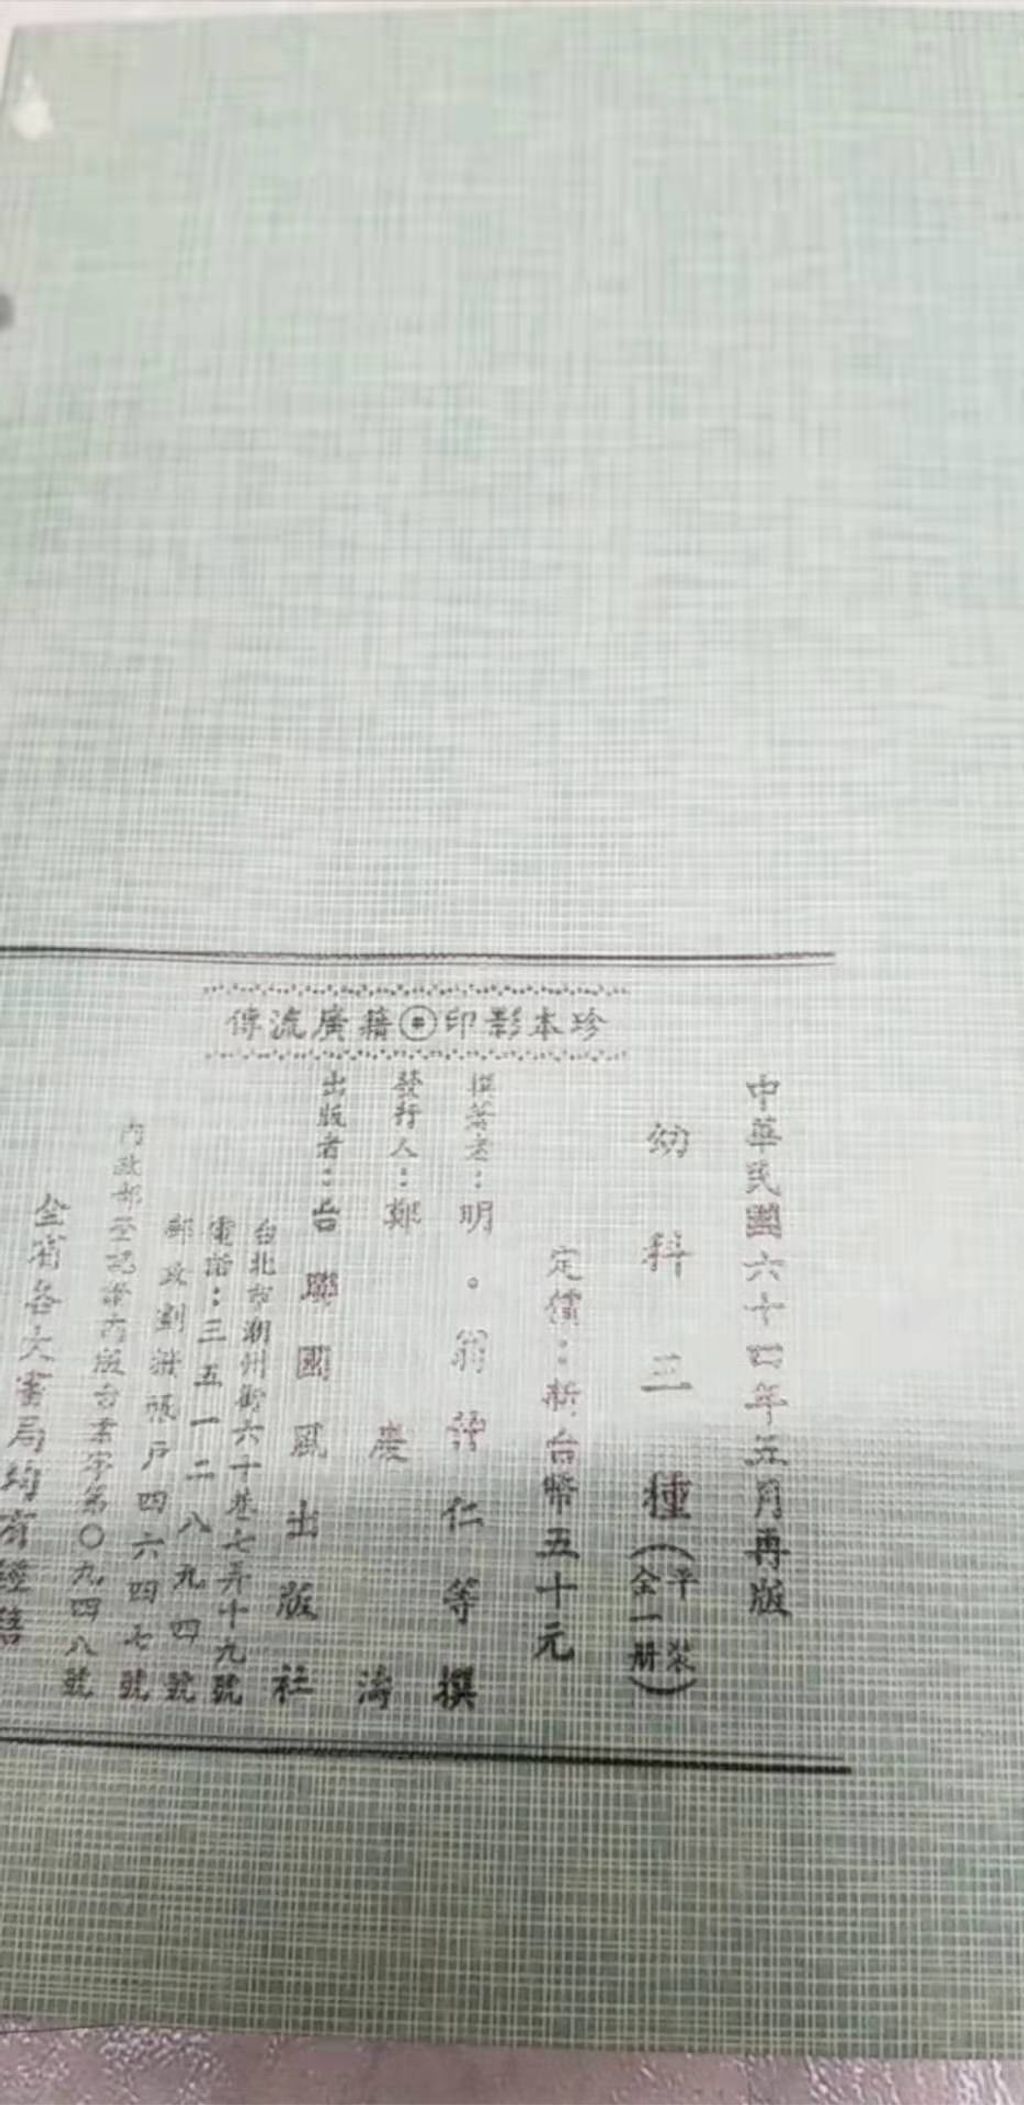 珍本影印⊕籍廣流傳
中華民國六十四年五月再版
幼科三種(平裝全一冊)
定價:新台幣五十元
撰著者:明。翁仲仁等撰
發行人:鄭慶鴻
出版者:台聯國風出版社
台北市潮州街六十巷七弄十九號
電話:三五一二八九四號
郵政劃撥帳戶四六四七號
內政部登記證內版台業字第〇九四八號
全省各大書局均有經售